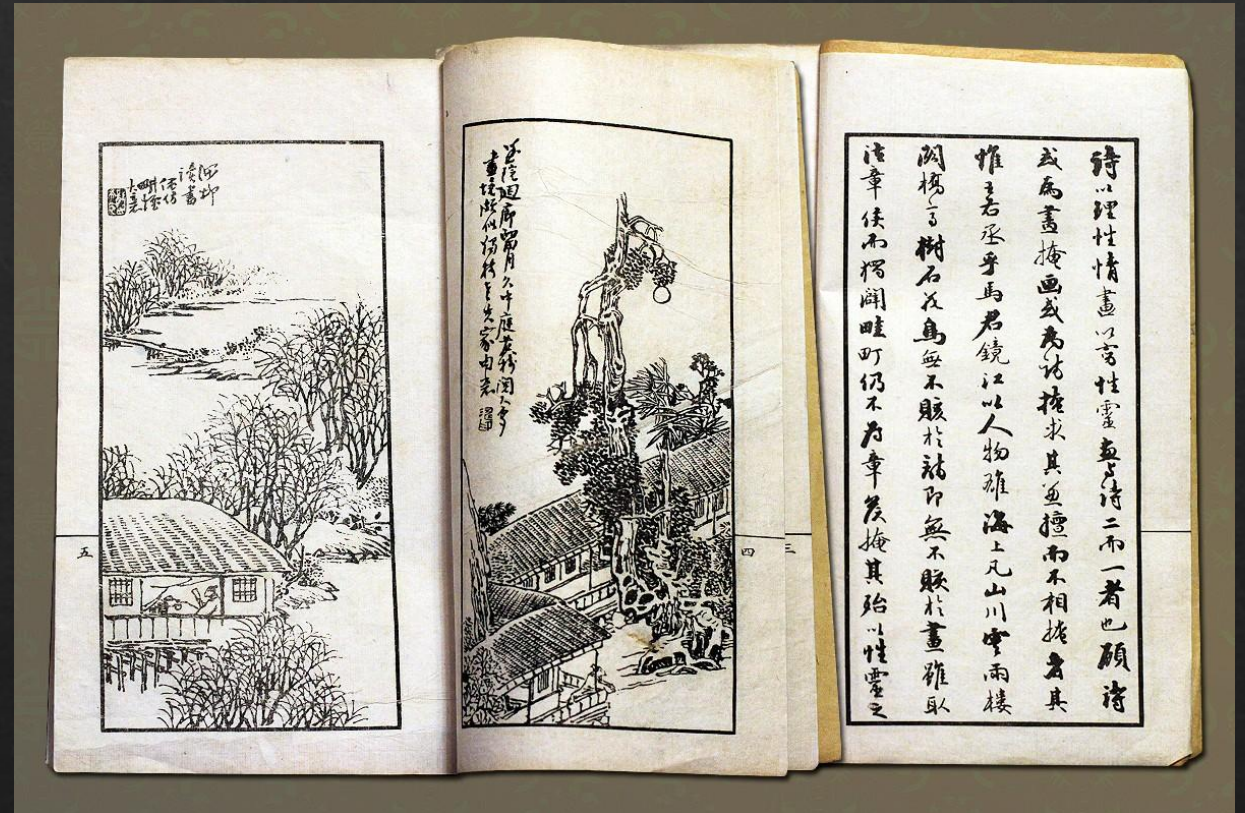 詩以理性情畫以寫性靈畫與詩二而一者也顧詩
或為畫掩画或為詩掩求其兼擅而不相掩者其
惟王右丞乎馬君鏡江以人物雄海上凡山川雲雨楼
閣橋亭樹石花鳥無不賅於詩即無不賅於畫雖取
法章侯而獨闢畦町仍不為章侯掩其殆以性靈之
三
四
院迴廊留月久中庭老樹閱人多
畫境似
深柳
讀書
大意
五